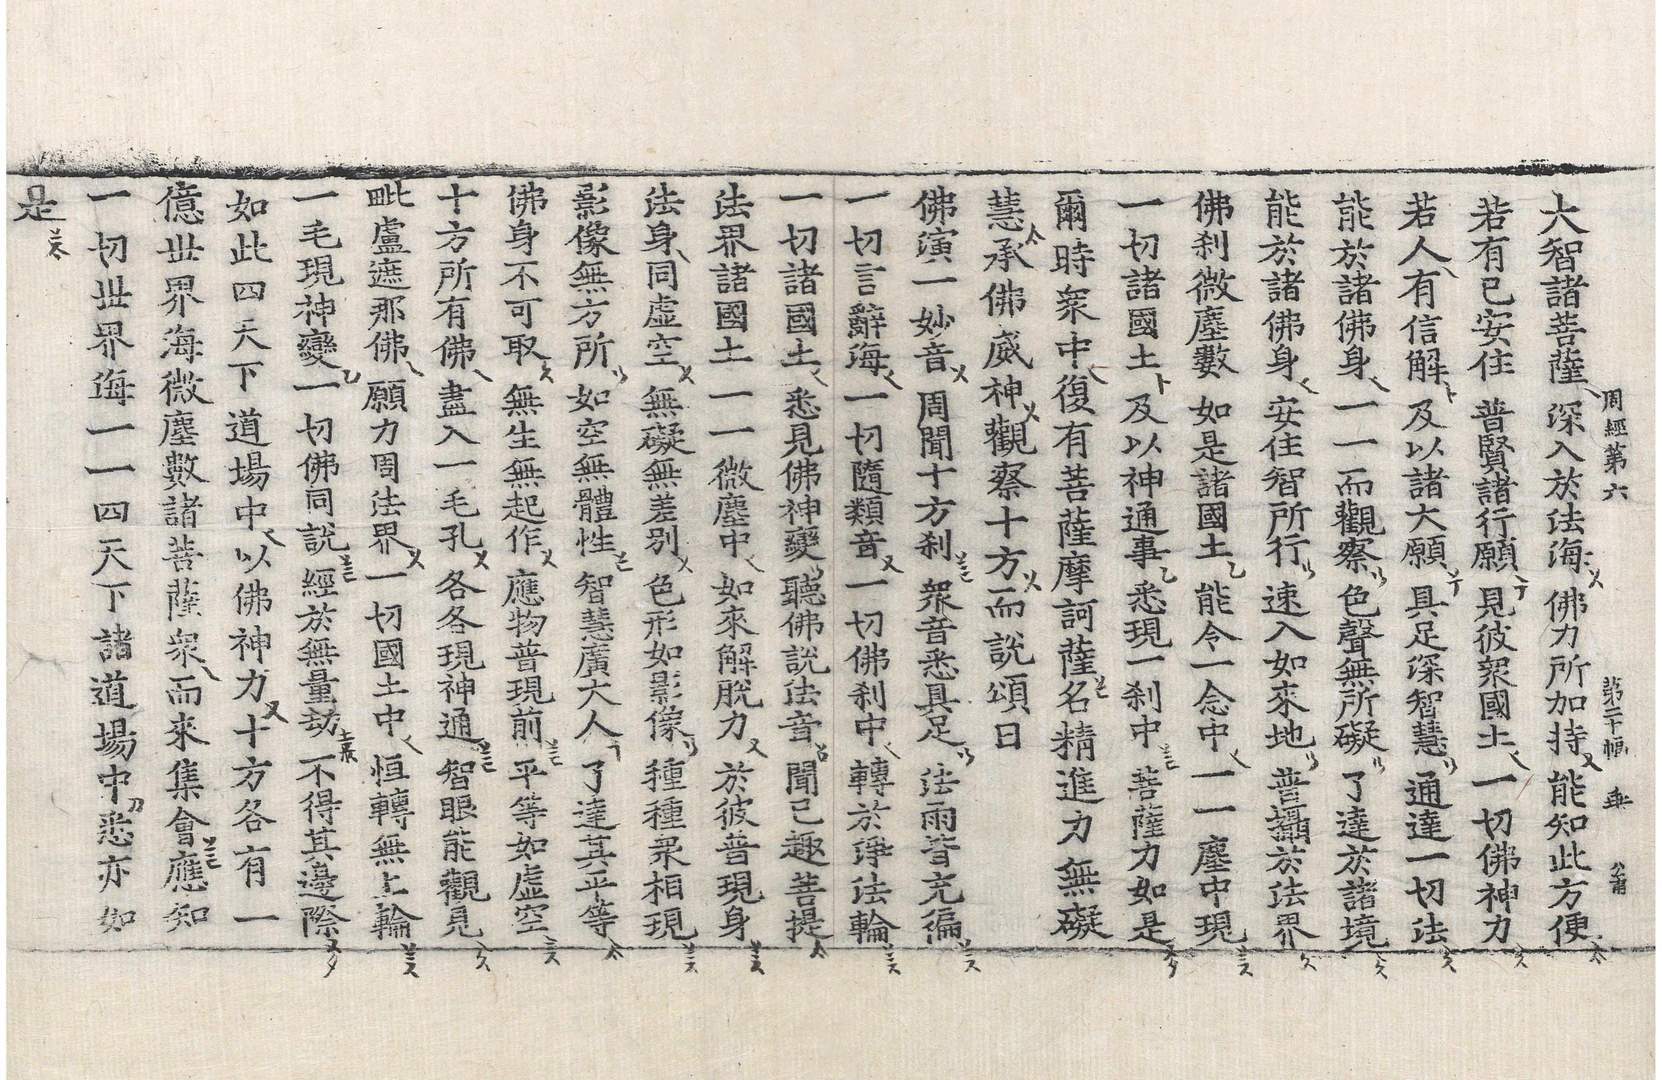 周經第六 第二十幅 垂 公甫
大智諸菩薩 深入於法海 佛力所加持 能知此方便
若有已安住 普賢諸行願 見彼衆國土 一切佛神力
若人有信解 及以諸大願 具足深智慧 通達一切法
能於諸佛身 一一而觀察 色聲無所礙 了達於諸境
能於諸佛身 安住智所行 速入如來地 普攝於法界
佛刹微塵數 如是諸國土 能令一念中 一一塵中現
一切諸國土 及以神通事 悉現一刹中 菩薩力如是
爾時衆中復有菩薩摩訶薩名精進力無礙
慧承佛威神觀察十方而說頌曰
佛演一妙音 周聞十方刹 衆音悉具足 法雨皆充徧
一切言辭海 一切隨類音 一切佛刹中 轉於淨法輪
一切諸國土 悉見佛神變 聽佛說法音 聞已趣菩提
法界諸國土 一一微塵中 如來解脫力 於彼普現身
法身同虛空 無礙無差別 色形如影像 種種衆相現
影像無方所 如空無體性 智慧廣大人 了達其平等
佛身不可取 無生無起作 應物普現前 平等如虛空
十方所有佛 盡入一毛孔 各各現神通 智眼能觀見
毗盧遮那佛 願力周法界 一切國土中 恒轉無上輪
一毛現神變 一切佛同說 經於無量劫 不得其邊際
如此四天下道場中以佛神力十方各有一
億世界海微塵數諸菩薩衆而來集會應知
一切世界海一一四天下諸道場中悉亦如
是